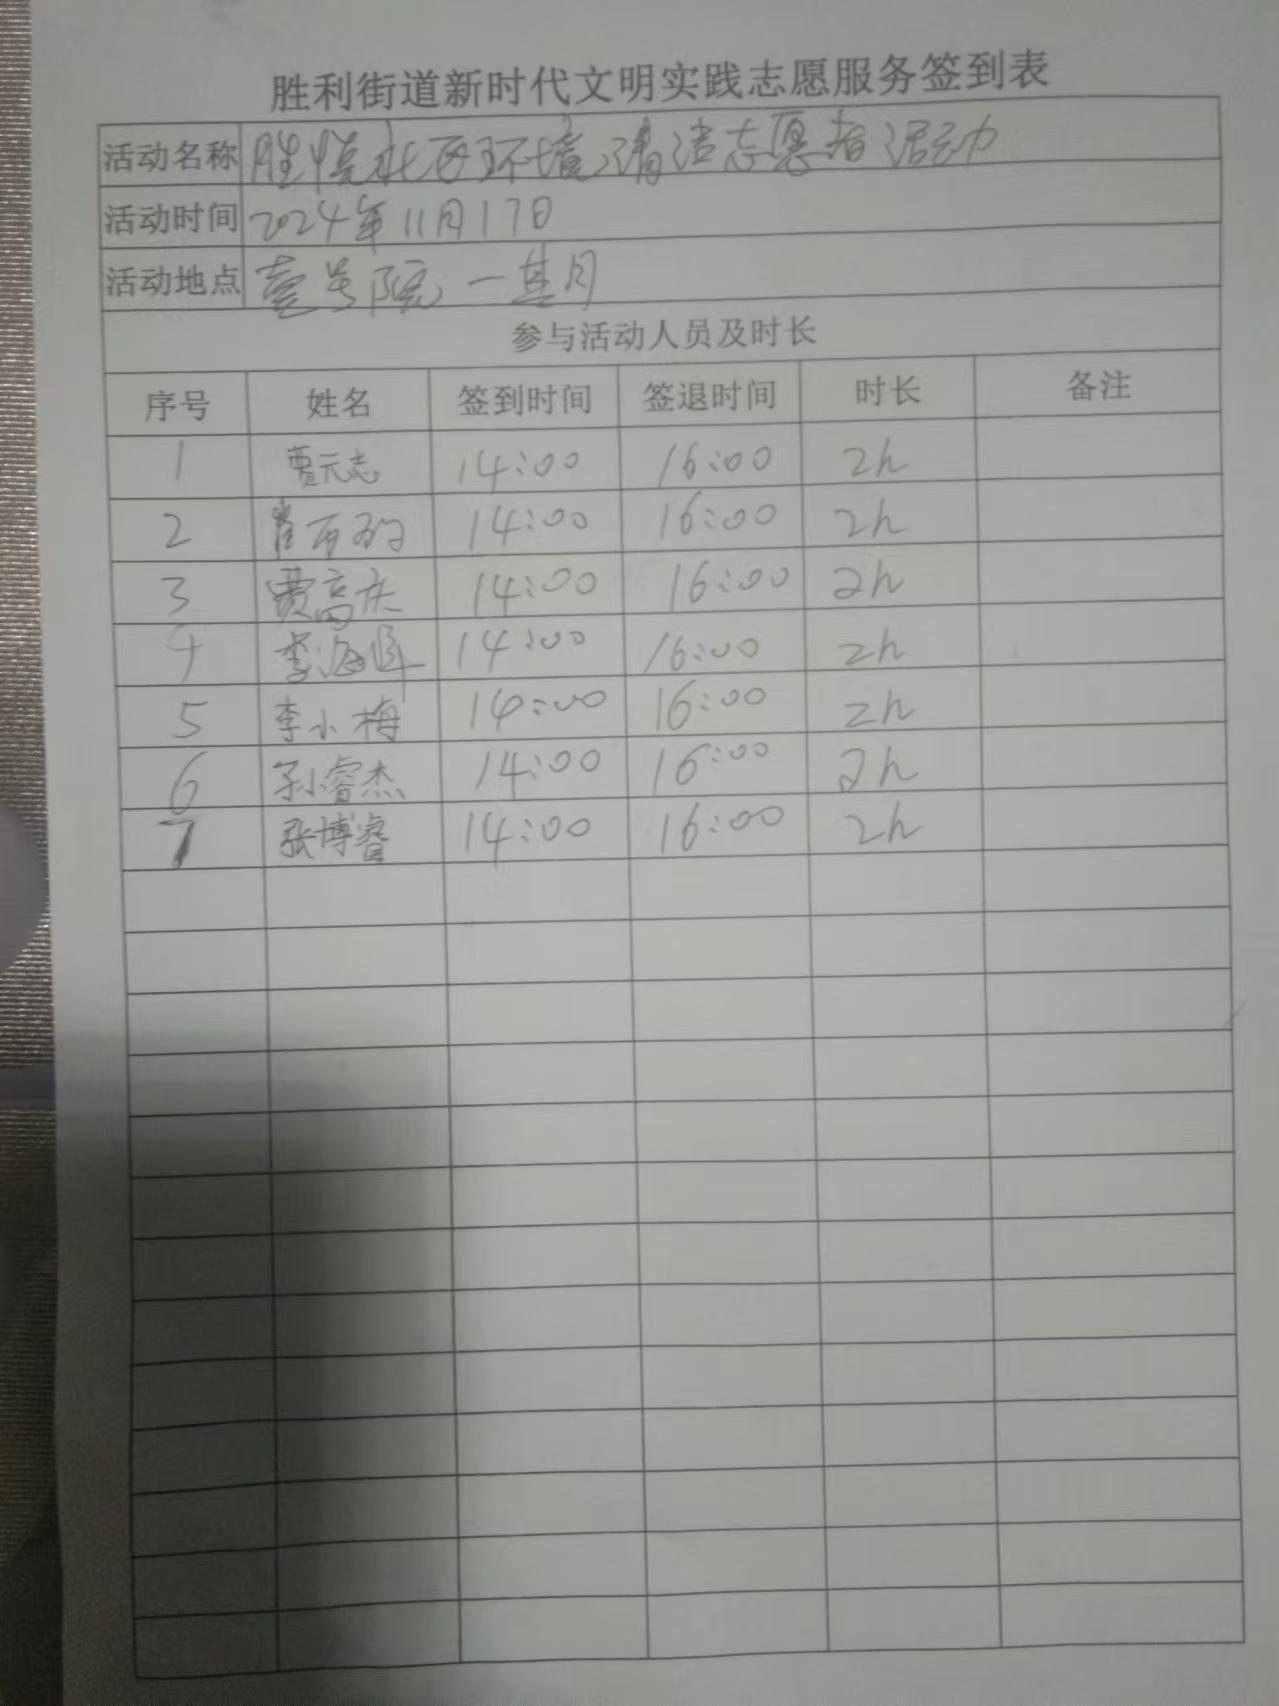 胜利街道新时代文明实践志愿服务签到表
活动名称 胜悦社区环境清洁志愿者活动
活动时间 2024年11月17日
活动地点 壹号院一期
参与活动人员及时长
序号 姓名 签到时间 签退时间 时长 备注
1 贾元志 14:00 16:00 2h
2 14:00 16:00 2h
3 费高庆 14:00 16:00 2h
4 李海峰 14:00 16:00 2h
5 李小梅 14:00 16:00 2h
6 孙睿杰 14:00 16:00 2h
7 张博睿 14:00 16:00 2h